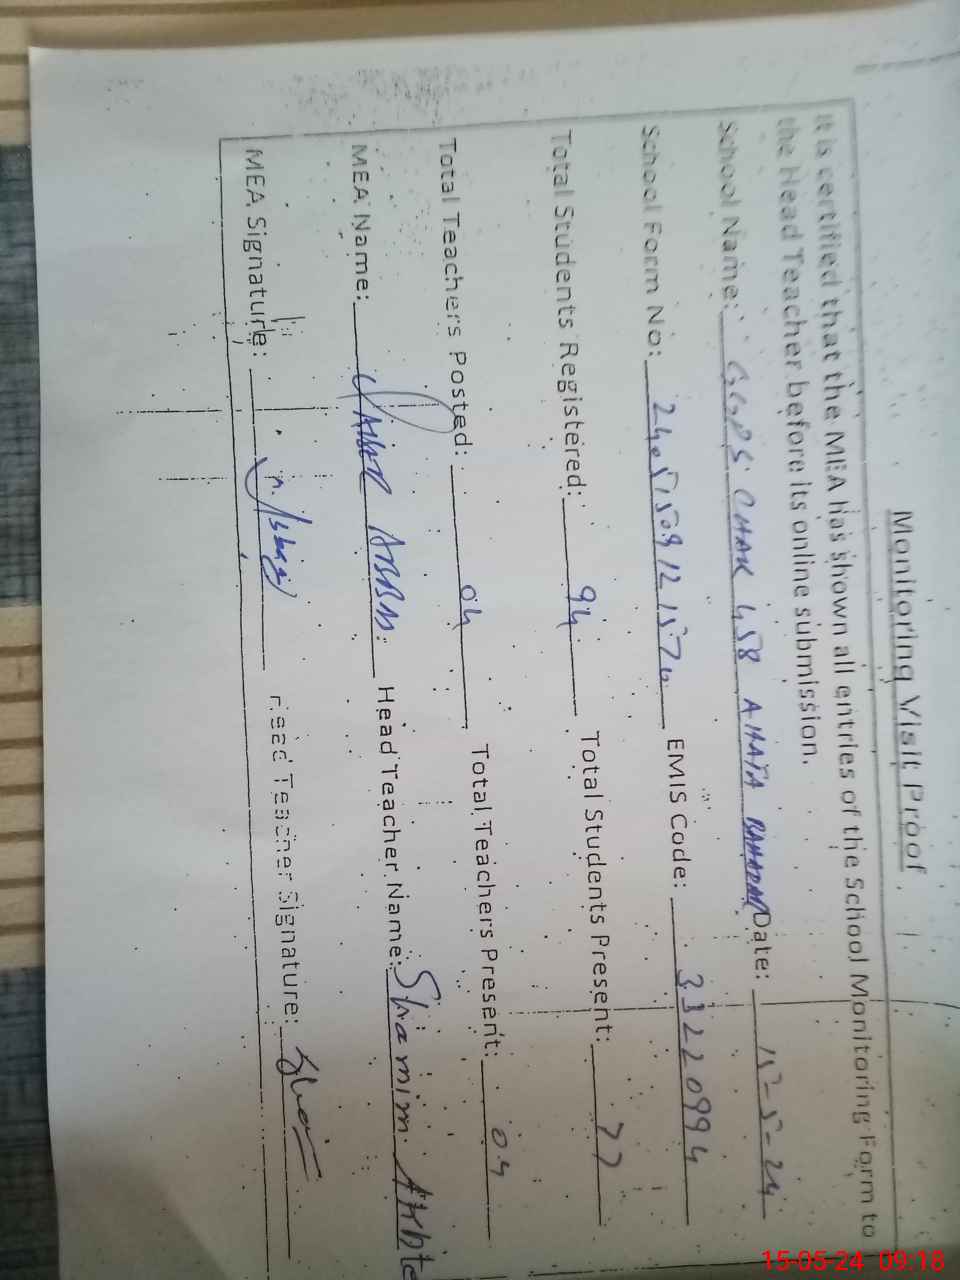 Monitoring Visit Proof
It is certified that the MEA has shown all entries of the School Monitoring Form to
the Head Teacher before its online submission.
School Name: GGPS CHAK 458 AHATA Date: 15-5-24
School Form No: EMIS Code: 33220994
Total Students Registered: 94 Total Students Present: 77
Total Teachers Posted: 04 Total Teachers Present: 04
MEA Name: Head Teacher Name: Shamim Akhte
MEA Signature: Head Teacher Signature:
15-05-24 09:18